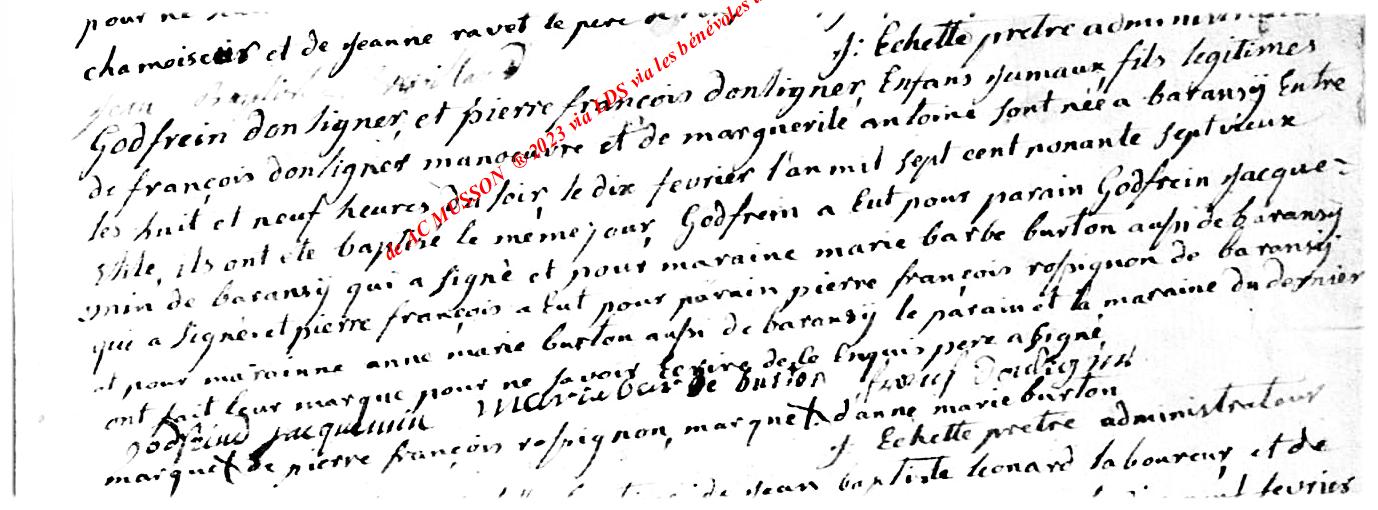 pour ne
chamoiseur et de jeanne ravet le pere
J: Echette pretre administrateur
jean
Godfrein donligner, et pierre françois donligner, Enfans jumaux, fils legitimes
de françois donligner manoeuvre et de marguerite antoine sont née a baransÿ Entre
les huit et neuf heures du soir le dix fevrier l'an mil sept cent nonante sept vieux
stile, ils ont ete baptise le même jour, Godfrein a Eut pour parain Godfrein jacque-
min de baransÿ qui a signè et pour maraine marie barbe burton aussi de baransÿ
qui a signè, et pierre françois a Eut pour parain pierre françois rossignon de baransÿ
et pour marainne anne marie burton aussi de baransÿ le parain et la maraine du dernier
ont fait leur marque pour ne savoir Ecrire de ce Enquis pere a signé
godfrind jacquemin maria barbe burton
marque + de pierre françois rossignon, marque +. d'anne marie burton
J: Echette pretre administrateur
de jean baptiste leonard laboureur, et de
fevrier
de AC MUSSON ® 2023 via LDS via les bénévoles